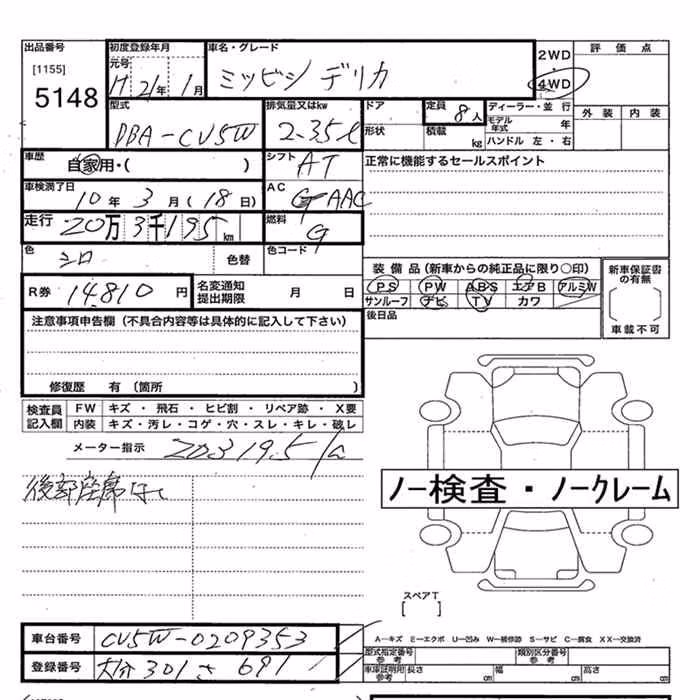 出品番号 初度登録年月 車名・グレード 2WD 評価点
[1155] 元号 ・
5148 H 21年 1月 ミツビシ デリカ 4WD
外装 内装
型式 排気量又はkw ドア 定員 8人 ディーラー・並行
DBA-CV5W 2.35ℓ 形状 積載 kg モデル年式 年
ハンドル 左・右
車歴 自家用・( ) シフト AT 正常に機能するセールスポイント
車検満了日 AC
10年 3月(18日) AAC
走行 20万3千195km 燃料 G
色 シロ 色替 色コード
装備品(新車からの純正品に限り○印) 新車保証書の有無
R券 14,810円 名変通知提出期限 月 日 PS PW ABS エアB アルミW
サンルーフ ナビ TV カワ
車載不可
注意事項申告欄(不具合内容等は具体的に記入して下さい) 後日品
修復歴 有 (箇所 )
検査員記入欄 FW キズ・飛石・ヒビ割・リペア跡・X要
内装 キズ・汚レ・コゲ・穴・スレ・キレ・破レ
メーター指示 203195
後部座席なし
ノー検査・ノークレーム
スペアT
[ ]
車台番号 CV5W-0209353
A—キズ E—エクボ U—凹み W—補修跡 S—サビ C—腐食 XX—交換済
登録番号 大分 301 さ 691
型式指定番号 参考 類別区分番号 参考
車庫証明用 参考 長さ cm 幅 cm 高さ cm